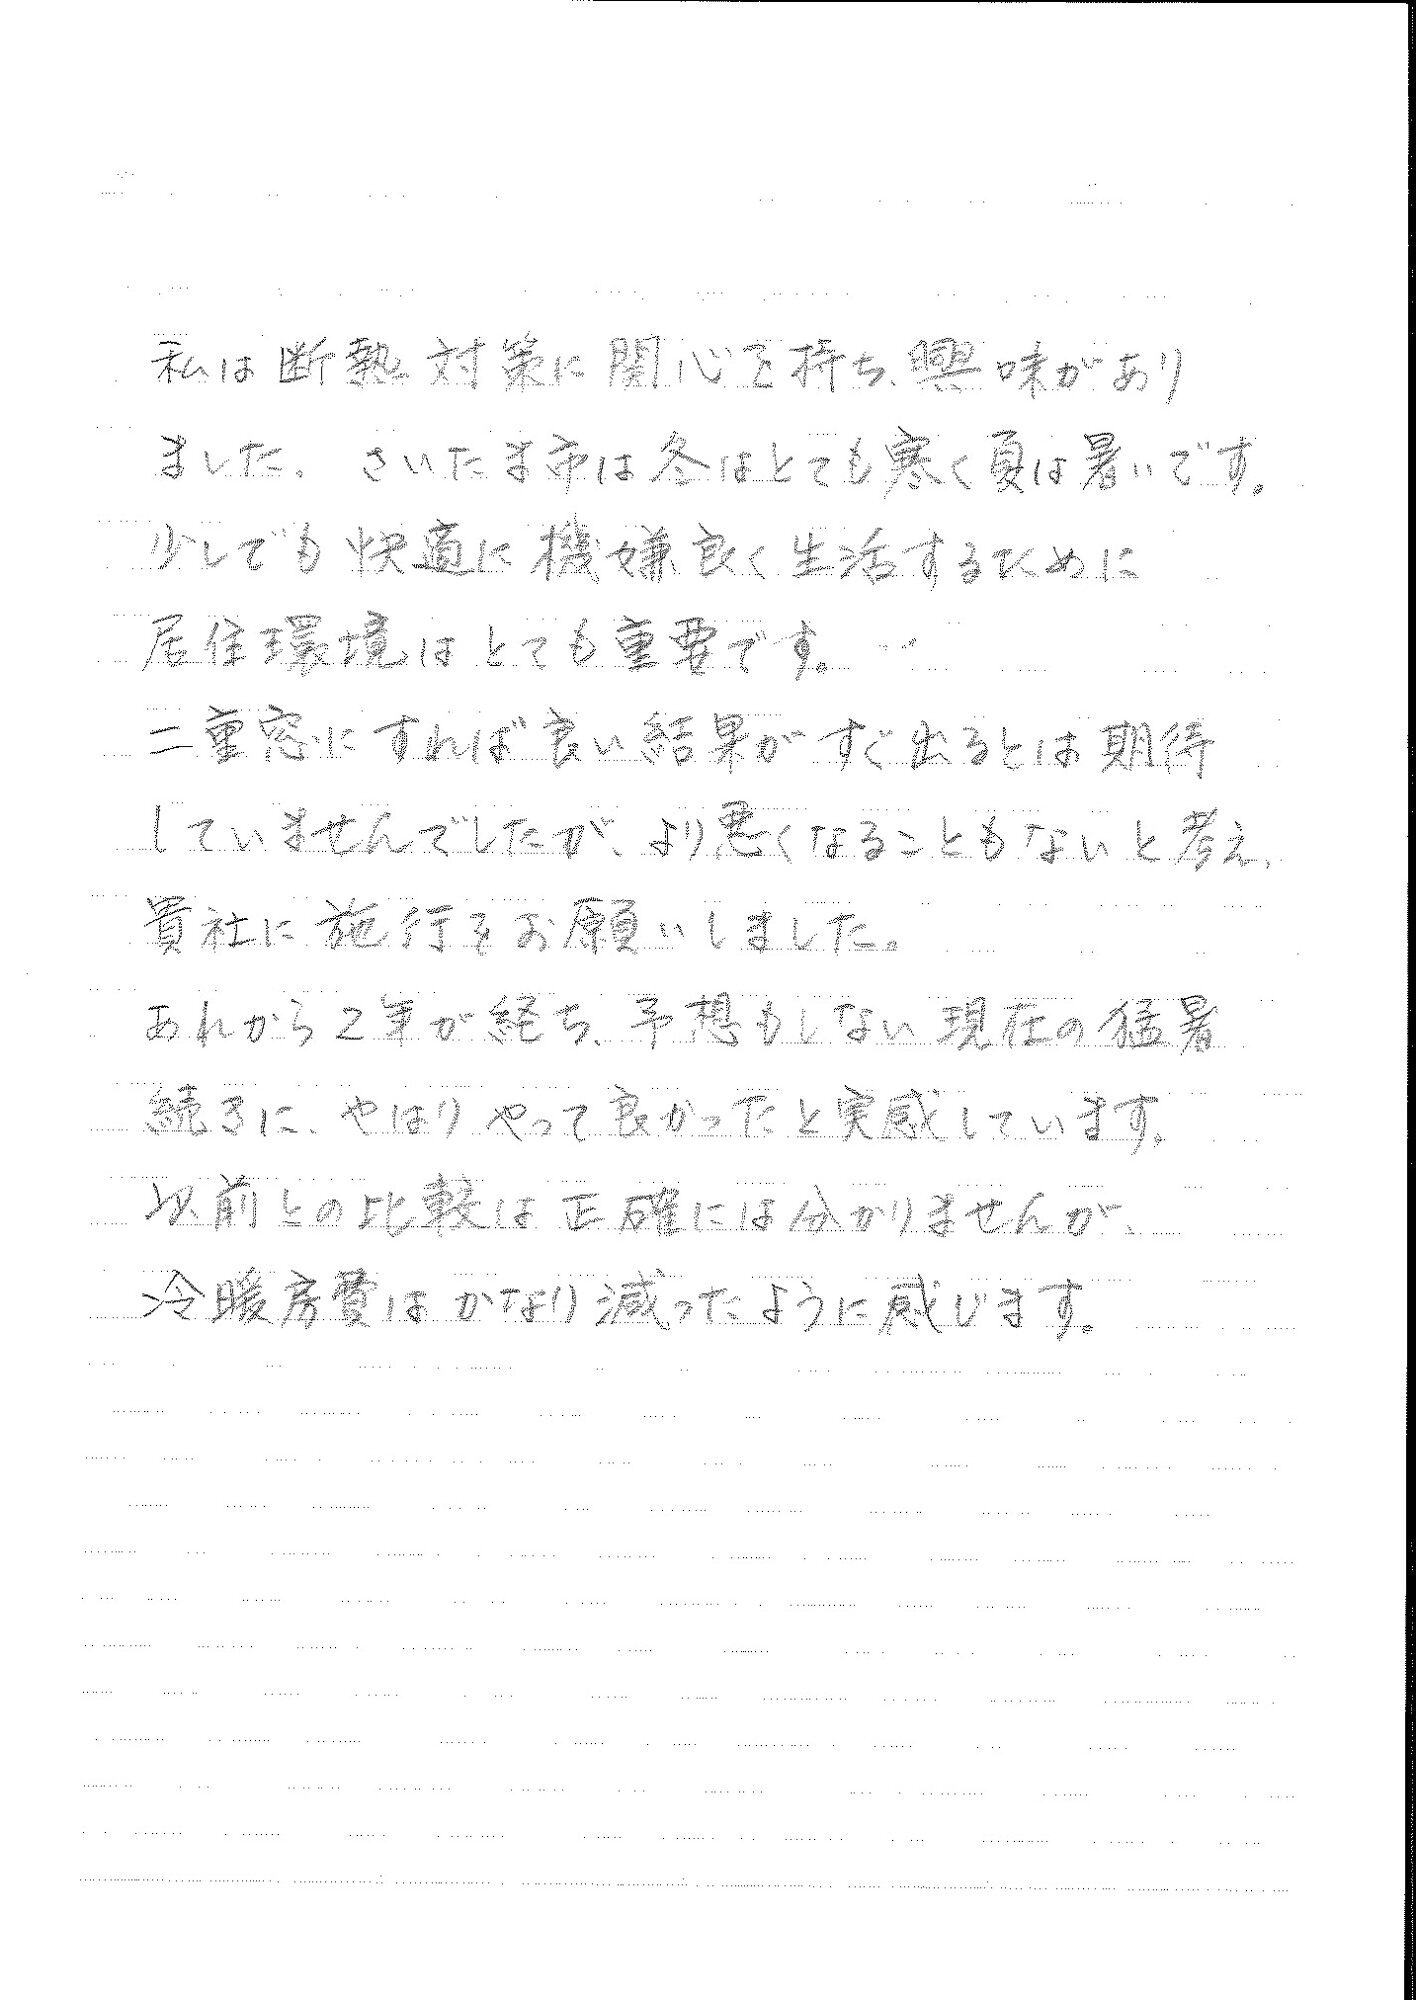 私は断熱対策に関心を持ち、興味があり
ました。さいたま市は冬はとても寒く夏は暑いです。
少しでも快適に機嫌良く生活するために
居住環境はとても重要です。
二重窓にすれば良い結果がすぐ出るとは期待
していませんでしたが、より悪くなることもないと考え、
貴社に施行をお願いしました。
あれから2年が経ち、予想もしない現在の猛暑
続きに、やはりやって良かったと実感しています。
以前との比較は正確には分かりませんが、
冷暖房費はかなり減ったように感じます。